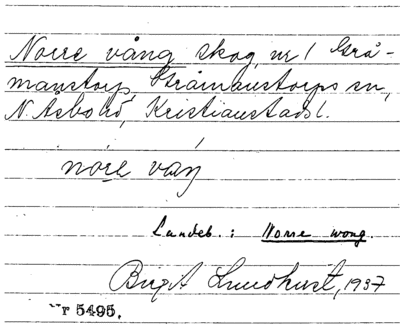 Norre vång skog, nr 1 Grå-
manstorp, Gråmanstorps sn,
N. Åsbo hd, Kristianstads l.
nóre váŋ
Landeb.: Norre wong.
Birgit Lundkvist, 1937
Nr 5495.